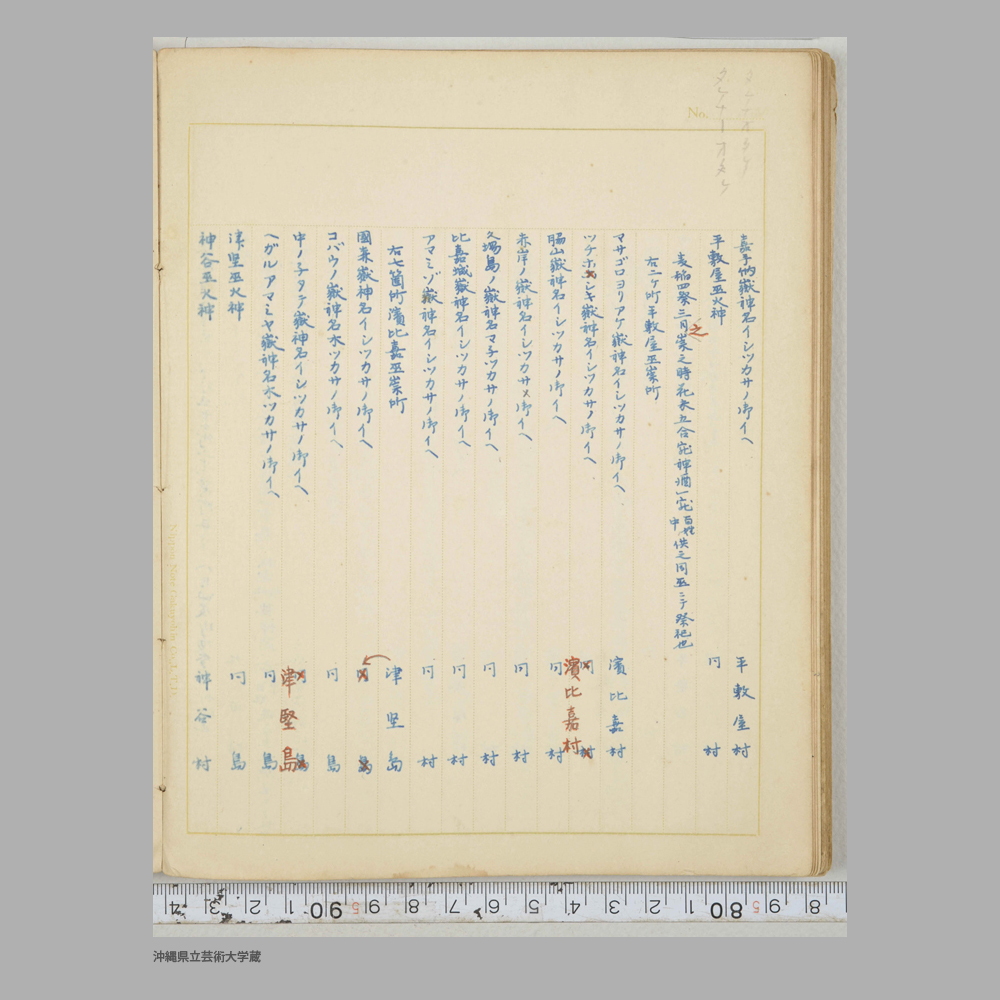 タケナオタケ
タケナーオタケ
No.
嘉手納嶽神名イシツカサノ御イベ 平敷屋村
平敷屋巫火神 同 村
麦稲四祭三月崇之時花米五合宛神酒一宛百姓中供之同巫ニテ祭祀也
之
右二ケ所平敷屋巫崇所
マサゴロヨリアゲ嶽神名イシツカサノ御イベ 濱比嘉村
ツケホシキ嶽神名イシツカサノ御イベ 同 村
濱比嘉村
脇山嶽神名イシツカサノ御イベ 同 村
赤岸ノ嶽神名イシツカサノ御イベ 同 村
久場島ノ嶽神名マチツカサノ御イベ 同 村
比嘉城嶽神名イシツカサノ御イベ 同 村
アマミゾ嶽神名イシツカサノ御イベ 同 村
右七箇所濱比嘉巫崇所
津堅島
國森嶽神名イシツカサノ御イベ 同 島
コバウノ嶽神名水ツカサノ御イベ 同 島
中ノ子タテ嶽神名イシツカサノ御イベ 同 島
津堅島
ヘガルアマミヤ嶽神名水ツカサノ御イベ 同 島
津堅巫火神 同 島
神谷巫火神 神谷村
4 3 2 1 90 5 9 8 7 6 5 4 3 2 1 80 5 9 8
沖縄県立芸術大学蔵